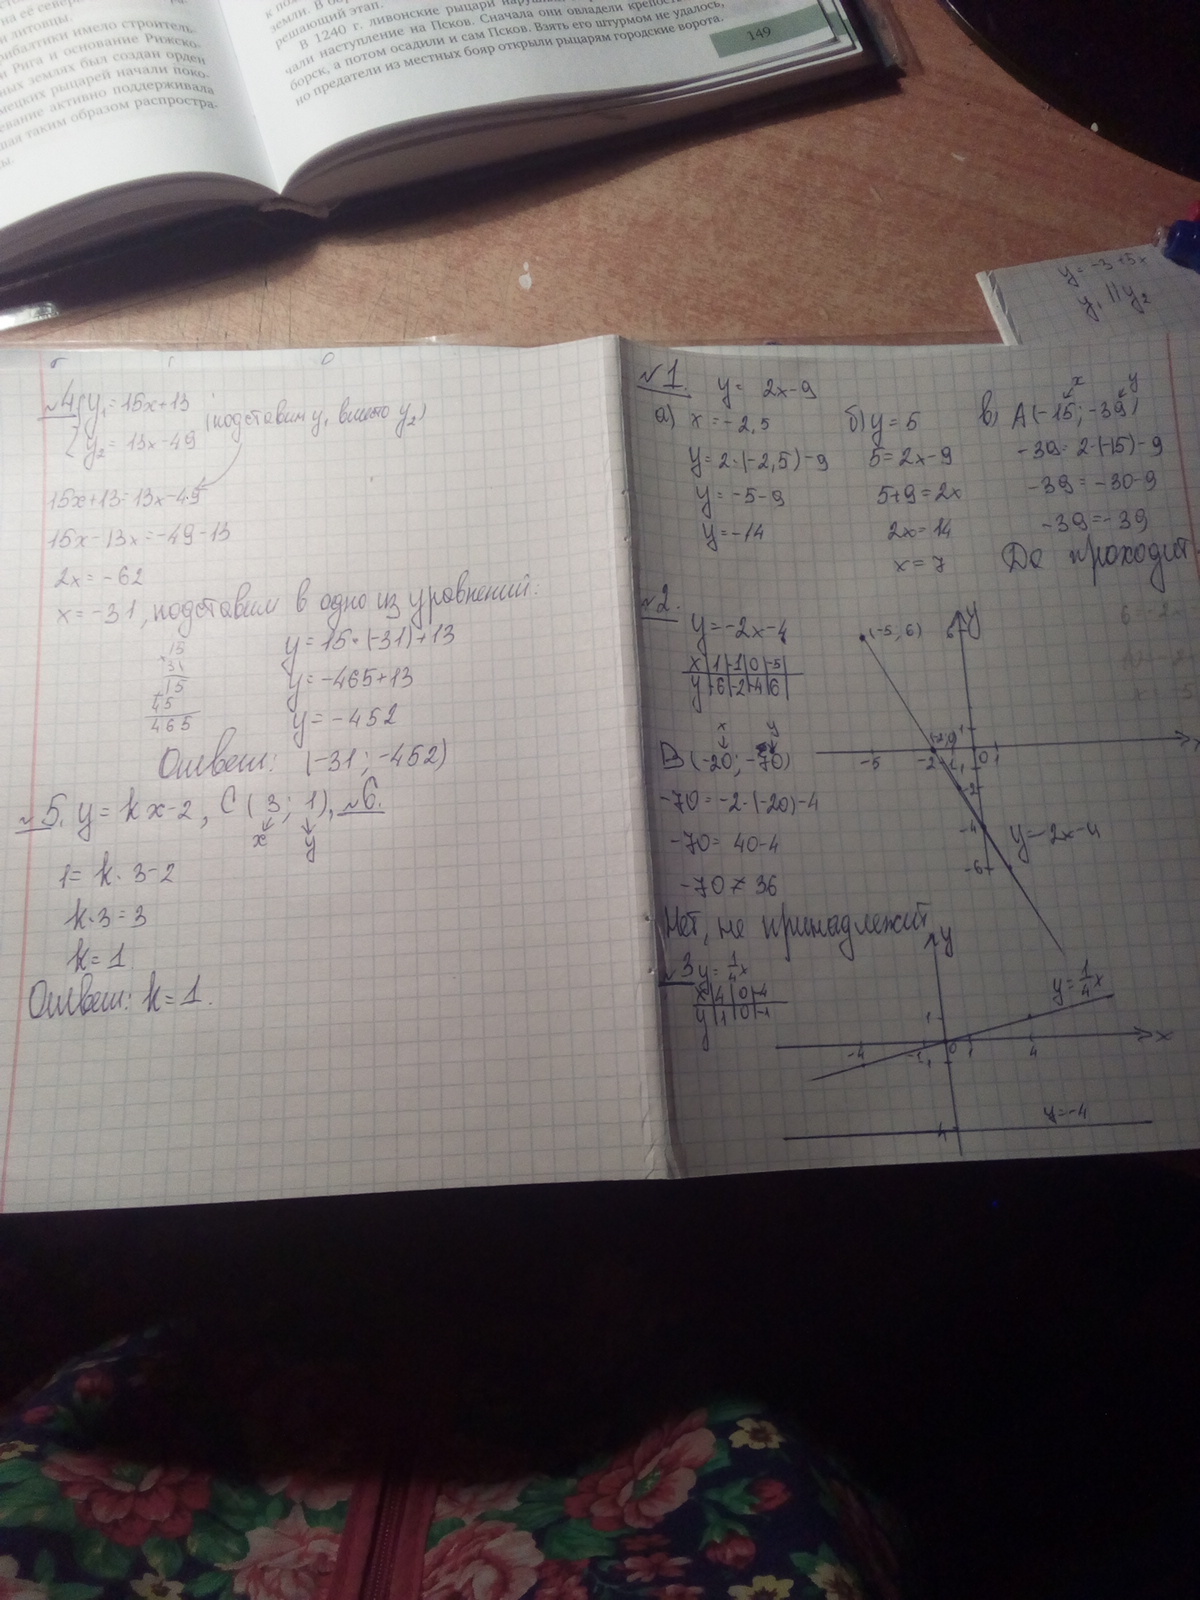 149
решающий этап.
В 1240 г. ливонские рыцари
чали наступление на Псков. Сначала они овладели
борск, а потом осадили и сам Псков. Взять его штурмом не удалось,
но предатели из местных бояр открыли рыцарям городские ворота.
и литовцы.
имело строитель-
и Рига и основание Рижско-
ных землях был создан орден
мецких рыцарей начали поко-
евание активно поддерживала
шая таким образом распростра-
y = -3+5x
y₁ || y₂
№4 { y₁ = 15x+13
y₂ = 13x-49
(подставим y₁ вместо y₂)
15x+13=13x-49
15x-13x=-49-13
2x=-62
x=-31, подставим в одно из уравнений:
15
31
15
45
465
y=15·(-31)+13
y=-465+13
y=-452
Ответ: (-31; -452)
№5. y=kx-2, C(3; 1), №6.
x y
1=k·3-2
k·3=3
k=1
Ответ: k=1.
№1. y= 2x-9
а) x=-2,5
y=2·(-2,5)-9
y=-5-9
y=-14
б) y=5
5=2x-9
5+9=2x
2x=14
x=7
x y
в) A(-15; -39)
-39=2·(-15)-9
-39=-30-9
-39=-39
Да проходит
№2.
y=-2x-4
x 1 -1 0 -5
y -6 -2 -4 6
x y
B(-20; -70)
-70=-2·(-20)-4
-70=40-4
-70≠36
Нет, не принадлежит
(-5, 6)
6
y
1
-5
-2
0
1
-2
-4
-6
y=-2x-4
№3 y=1/4x
x 4 0 -4
y 1 0 -1
y
y=1/4x
1
-4
-1
0
1
4
x
-1
y=-4
-4